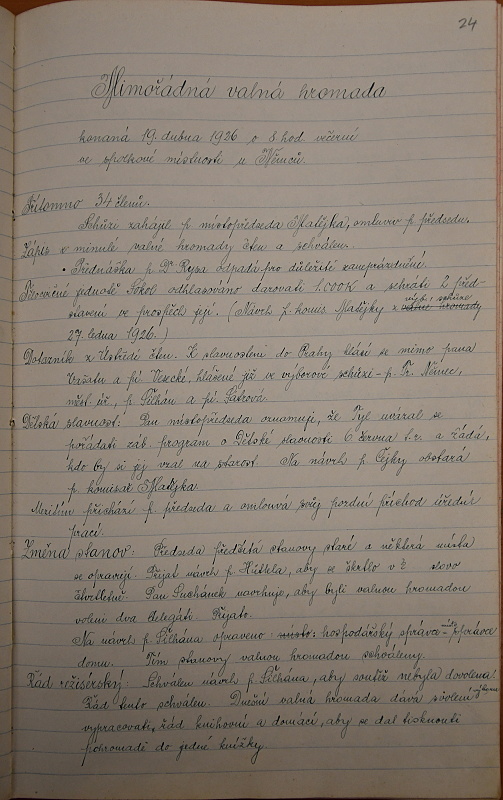 24
Mimořádná valná hromada
konaná 19. dubna 1926 o 8 hod. večerní
ve spolkové místnosti u Němců.
Přítomno 34 členů.
Schůzi zahájil p. místopředseda Matějka, omluviv p. předsedu.
Zápis z minulé valné hromady čten a schválen.
Přednáška p. Dr Rysa odpadá pro důležité zaneprázdnění.
Tělocvičné jednotě Sokol odhlasováno darovati 1.000 K a sehráti 2 před-
stavení ve prospěch její. (Návrh p. komis. Matějky z valné hromady výb. schůze
27. ledna 1926.)
Dotazník z Ústředí čten. K slavnostem do Prahy hlásí se mimo pana
a pí. Vesecké, hlášené již ve výborové schůzi - p. Fr. Němec,
měst. úř., p. Šilhán a pí.
Dětská slavnost: Pan místopředseda oznamuje, že Tyl uvázal se
pořádati záb. program o Dětské slavnosti 6. června t. r. a žádá,
kdo by si jej vzal na starost. Na návrh p. Čejky obstará
p. komisař Matějka.
Mezitím přichází p. předseda a omlouvá svůj pozdní příchod úřední
prací.
Změna stanov: Předseda předčítá stanovy staré a některá místa
se opravují. Přijat návrh p. Hüttela, aby se škrtlo v § slovo
čtvrtletně. Pan Suchánek navrhuje, aby byli valnou hromadou
voleni dva delegáti. Přijato.
Na návrh p. Šilhána opraveno: místo: hospodářský správce - p. správce
domu. Tím stanovy valnou hromadou schváleny.
Řád režisérský: Schválen návrh p. Šilhána, aby soutěž nebyla dovolena.
Řád tento schválen. Dnešní valná hromada dává svolení výboru
vypracovati řád knihovní a domácí, aby se dal tisknouti
pohromadě do jedné knížky.